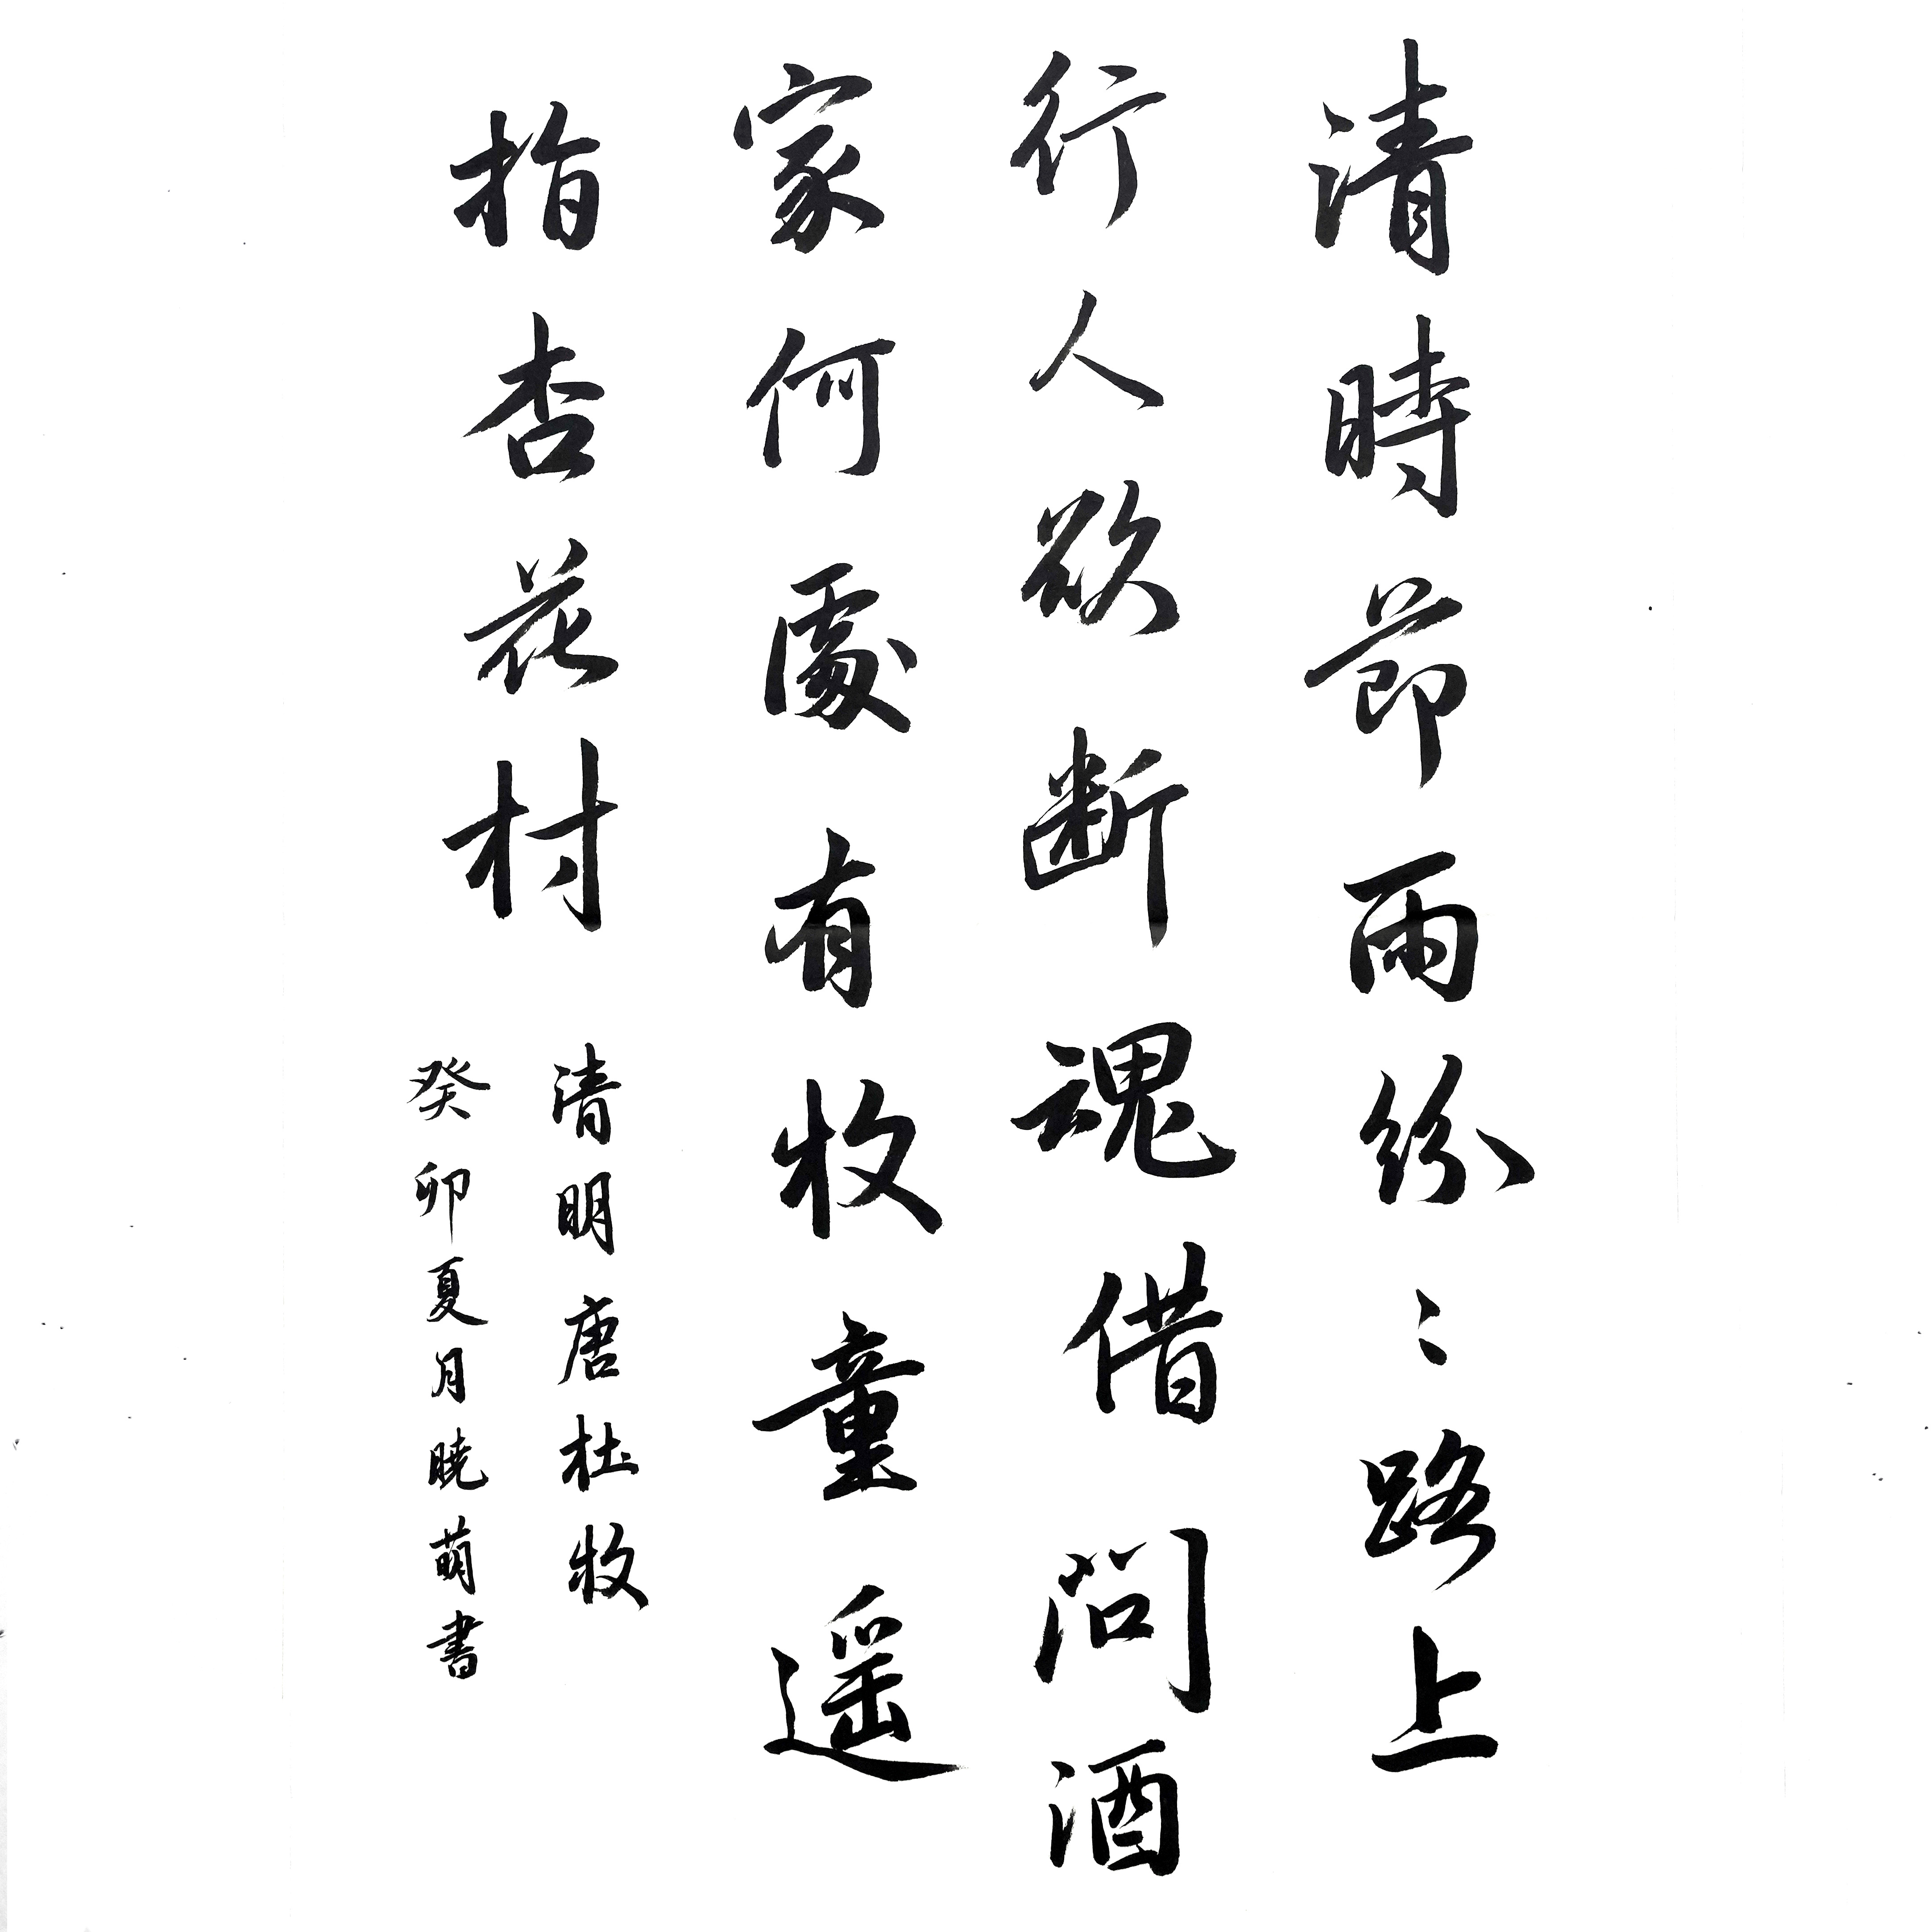 清時節雨紛〻路上
行人欲断魂借问酒
家何處有牧童遥
指杏花村
清明唐杜牧
癸卯夏月晓萌書